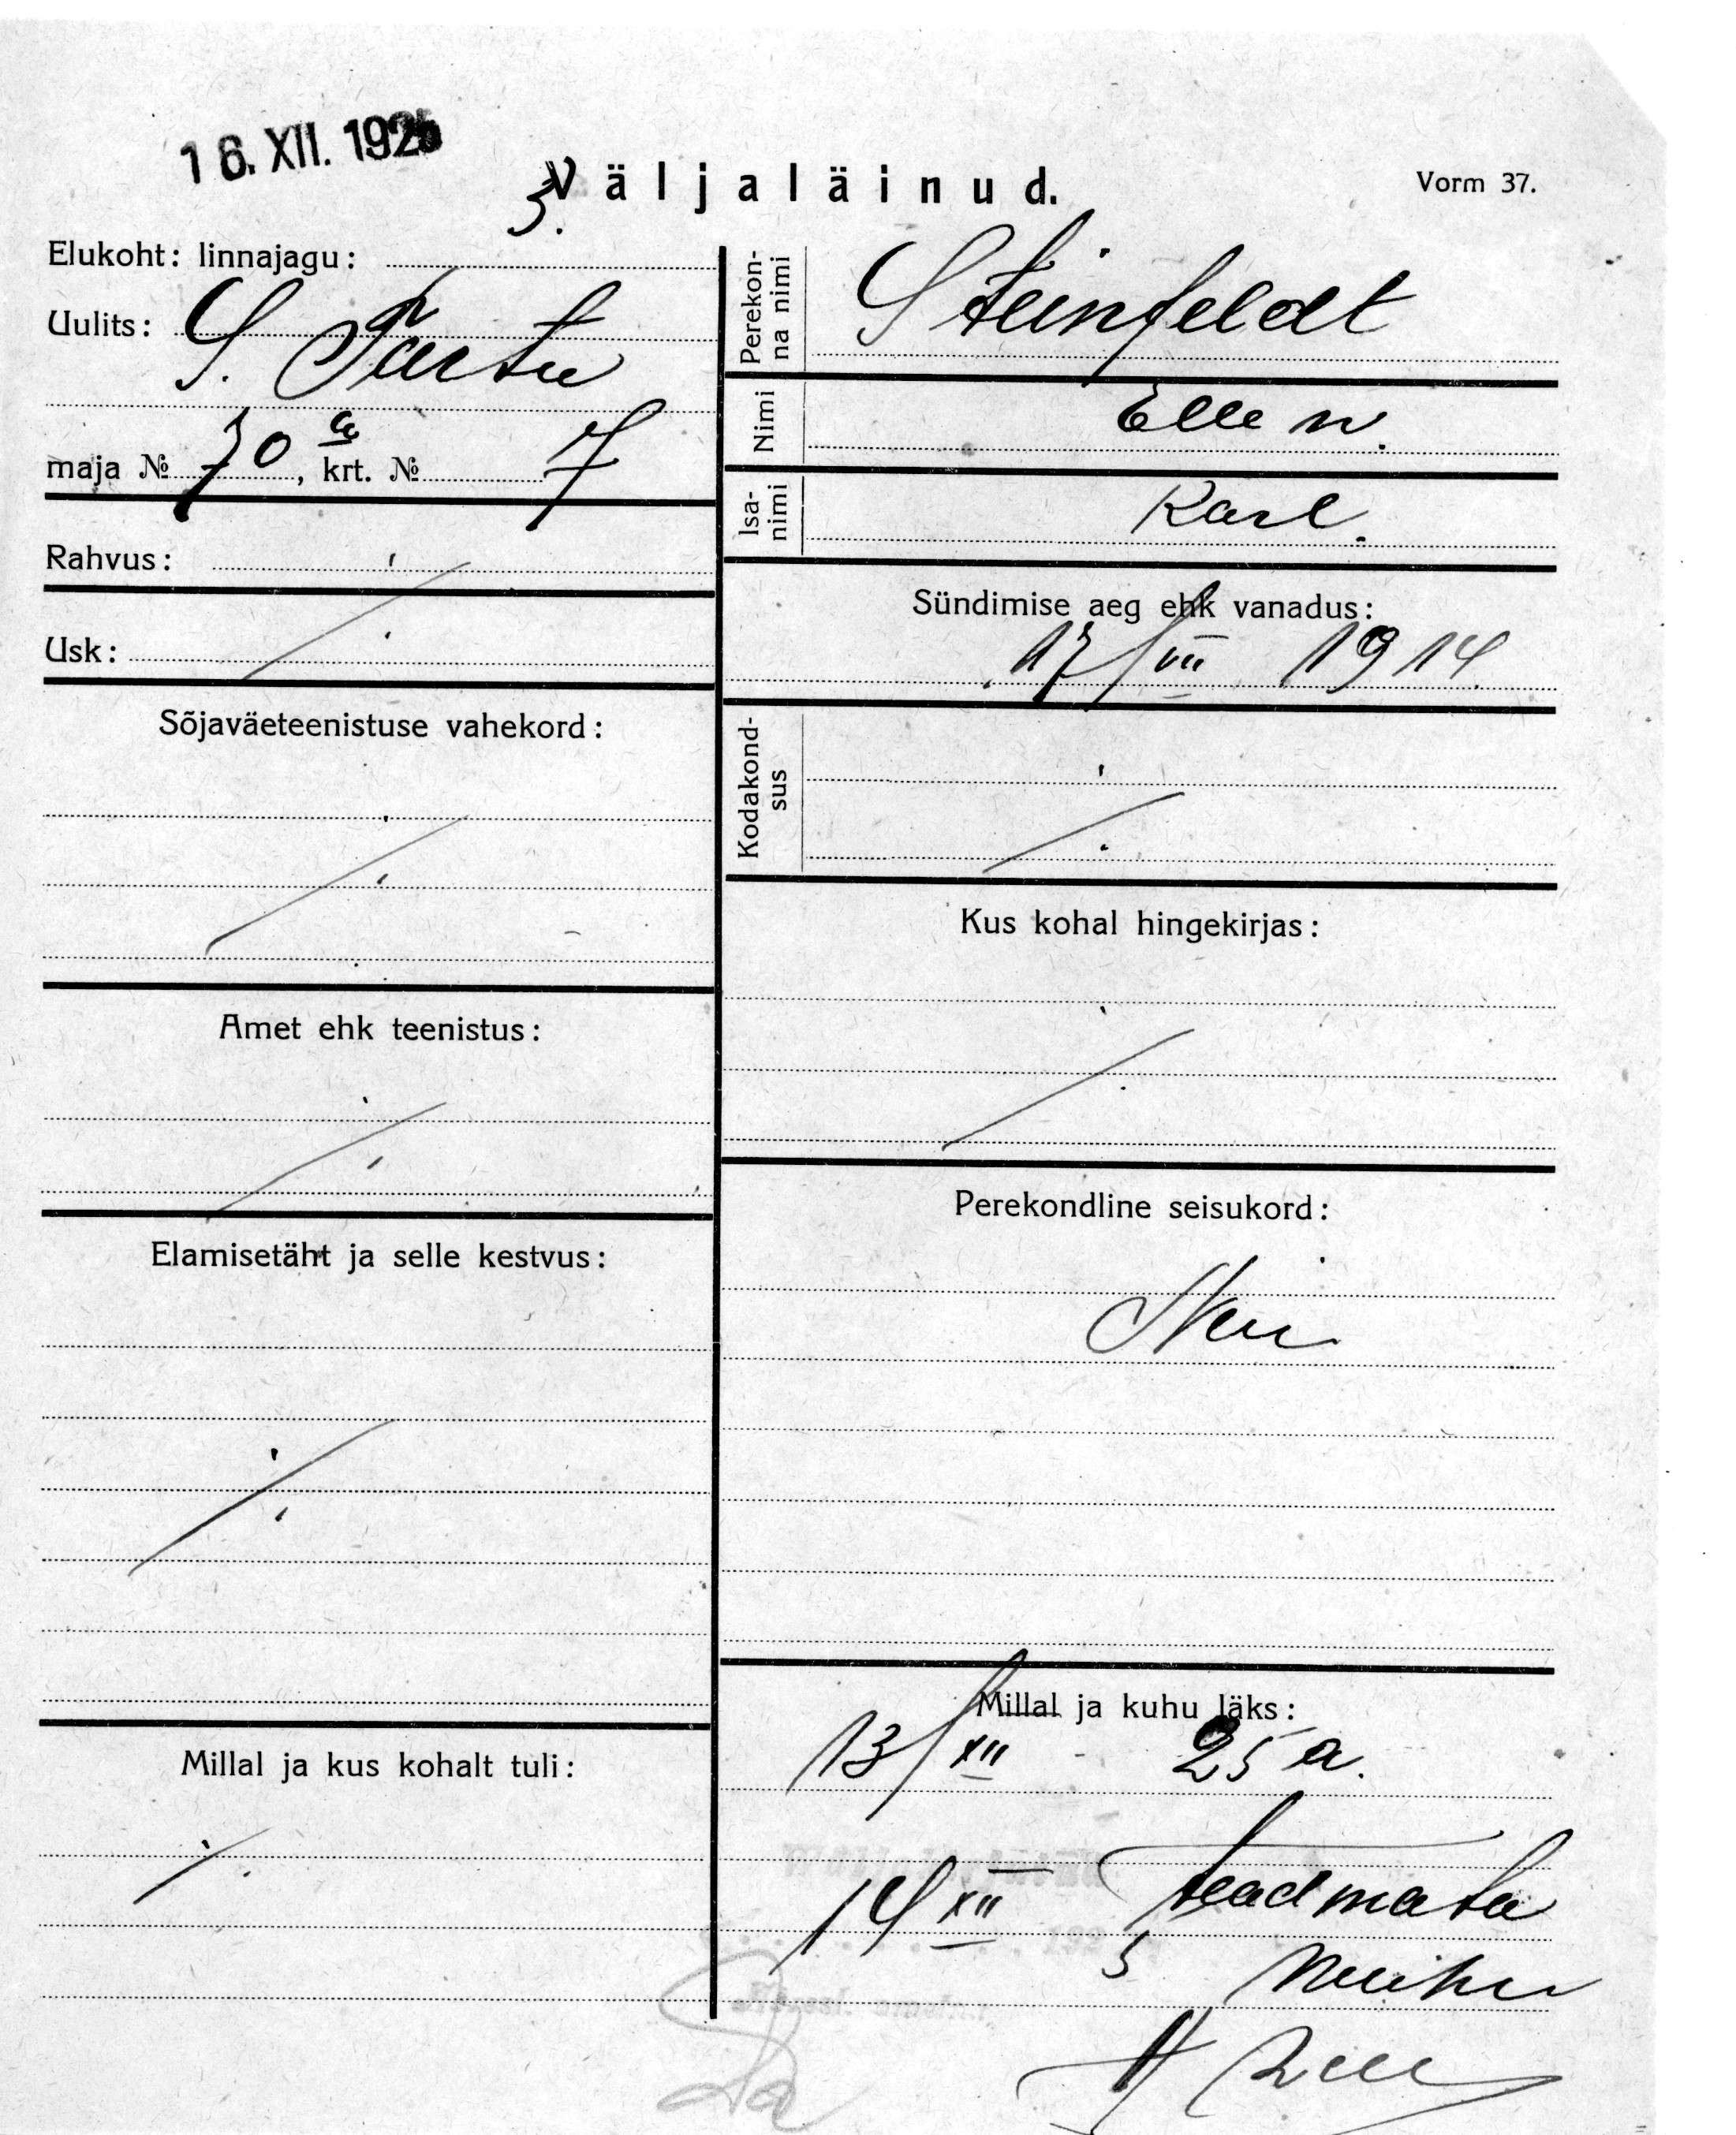 16. XII. 1925
3.
Väljaläinud.
Vorm 37.
Elukoht: linnajagu:
Uulits: S. Tartu
maja № 70 a, krt. № 7
Rahvus: ./.
Usk:
Sõjaväeteenistuse vahekord:
./.
Amet ehk teenistus:
./.
Elamisetäht ja selle kestvus:
./.
Millal ja kus kohalt tuli:
./.
Perekonna nimi
Steinfeldt
Nimi
Ellen.
Isanimi
Karl.
Sündimise aeg ehk vanadus:
17/VII 1914
Kodakondsus
./.
Kus kohal hingekirjas:
./.
Perekondline seisukord:
Nei
Millal ja kuhu läks:
13/XII 25 a.
teadmata
14 XII